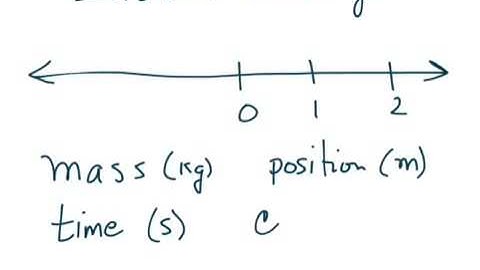 0 1 2
mass (kg) position (m)
time (s) c